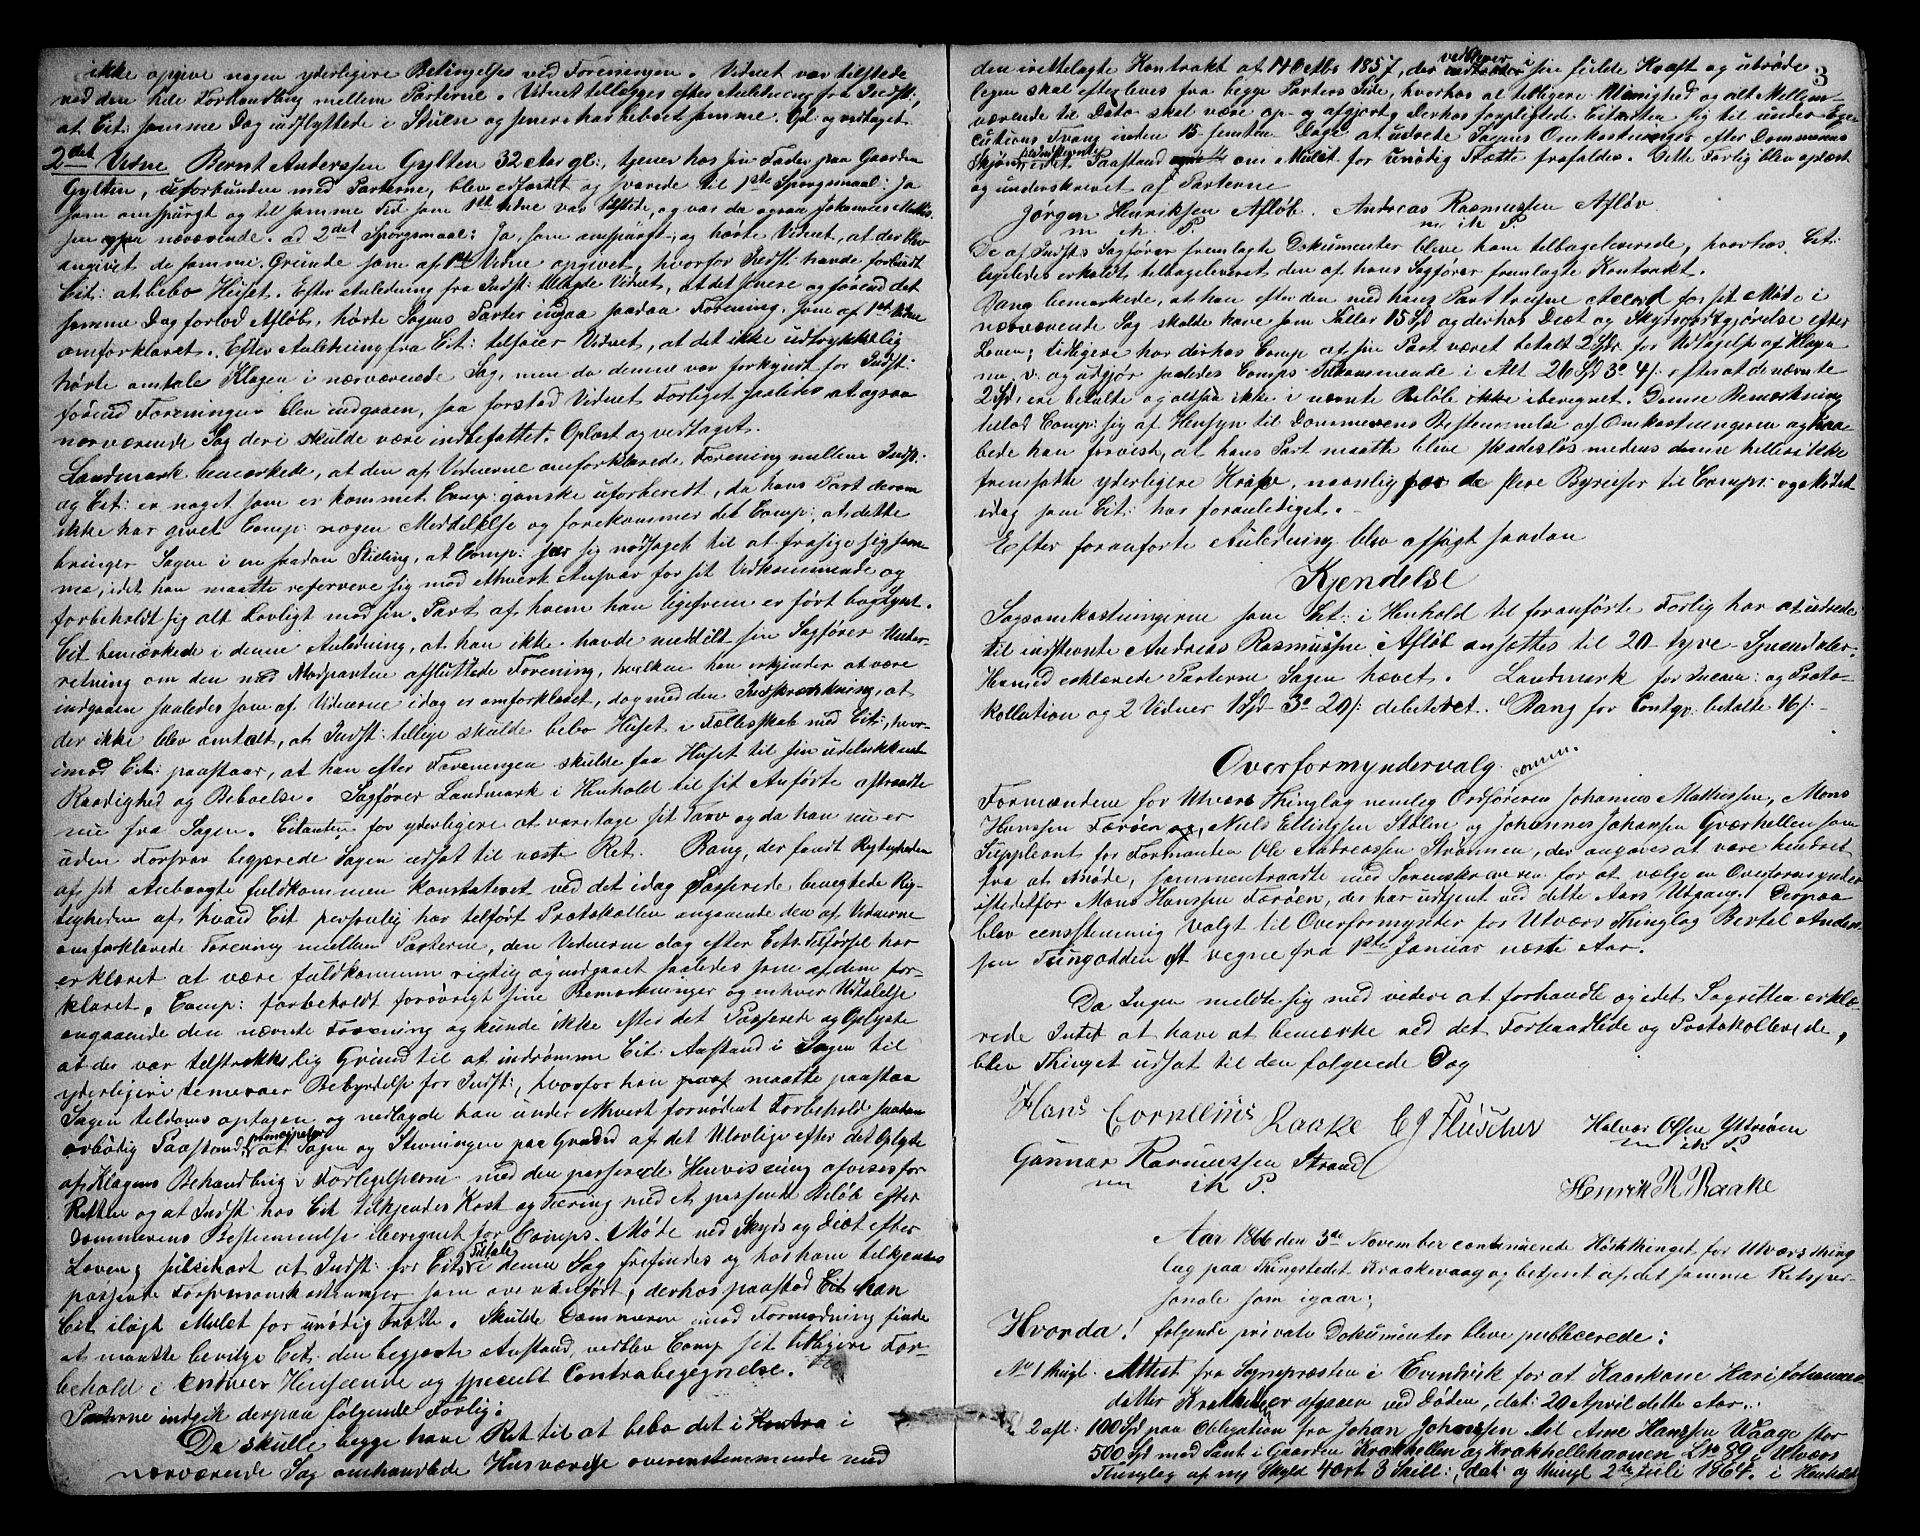 ikke opgive nogen yderligere Betingelser ved Foreningen. Vidnet var tilstede
ved den hele Forhandling mellem Parterne. Vidnet tillægger efter Anledning fra Indst:
at Cit: samme Dag indflyttede i Stuen og senere har beboet samme. Opl: og vedtaget
2det Vidne Bernt Anderssen Gylten 32 Aar gl:, tjener hos sin Fader paa Gaarden
Gylten, uforbunden med Parterne, blev edfæstet og svarede til 1ste Spørgsmaal: Ja
som omspurgt og til samme Tid som 1ste Vidne var tilstede, og var da ogsaa Johannes Maties-
sen nærværende. ad 2det Spørgsmaal: Ja, som omspurgt, og hørte Vidnet, at der blev
angivet de samme Grunde som af 1ste Vidne opgivet, hvorfor Indst: havde forbudt
Cit: at bebo Huset. Efter Anledning fra Indst: tillagde Vidnet, at det senere og førend det
samme Dag forlod Afløb, hørte Sagens Parter indgaa saadan Forening, som af 1ste Vidne
omforklaret. Efter Anledning fra Cit: tilføier Vidnet, at det ikke udtrykkelig
hørte omtale Klagen i nærværende Sag, men da denne var forkyndt for Indst:
førend Foreningen blev indgaaen, saa forstod Vidnet Forliget saaledes at ogsaa
nærværende Sag deri skulde være indbefattet. Oplæst og vedtaget.
Landmark bemærkede, at den af Vidnerne omforklarede Forening mellem Indst:
og Cit: er noget som er kommet Comp: ganske uforberedt, da hans Part derom
ikke har givet Comp: nogen Meddelelse og forekommer det Comp:, at dette
bringer Sagen i en saadan Stilling, at Comp: ser sig nødsaget til at frasige sig sam-
me, idet han maatte reservere sig mod ethvert Ansvar for sit Vedkommende og
forbeholdt sig alt Lovligt mod sin Part af hvem han ligefrem er ført bag Lyset.
Cit bemærkede i denne Anledning, at han ikke havde meddelt sin Sagfører Under-
retning om den med Modparten afsluttede Forening, hvilken han erkjender at være
indgaaen saaledes som af Vidnerne idag er omforklaret, dog med den Indskrænkning, at
der ikke blev omtalt, at Indst: tillige skulde bebo Huset i Fællesskab med Cit:, hvor-
imod Cit: paastaar, at han efter Foreningen skulde faa Huset til sin udelukkende
Raadighed og Beboelse. Sagfører Landmark i Henhold til sit Anførte aftraadte
nu fra Sagen. Citanten for yderligere at varetage sit Tarv og da han nu er
uden Forsvar begjærede Sagen udsat til næste Ret. Rang, der fandt Rigtigheden
af sit Anbragte fuldkommen konstateret ved det idag Passerede benegtede Rig-
tigheden af, hvad Cit personlig har tilført Protokollen angaaende den af Vidnerne
omforklarede Forening mellem Parterne, den Vidnerne idag efter Cits Tilførsel har
erklæret at være fuldkommen rigtig og indgaaet saaledes som af dem for-
klaret. Comp: forbeholdt forøvrigt sine Bemærkninger og enhver Udtalelse
angaaende den nævnte Forening og kunde ikke efter det Passerede og Oplyste
at der var tilstrækkelig Grund til at indrømme Cit: Anstand i Sagen til
yderligere temerær Bebyrdelse for Indst:, hvorfor han maatte paastaa
Sagen tildoms optagen og nedlagde han under ethvert fornødent Forbehold saadan
ærbødig Paastand, principaliter at Sagen og Stevningen paa Grund af det Ulovlige efter det Oplyste
af Klagens Behandling i Forligelserne med den passerede Henvisning afvises fra
Retten og at Indst: hos Cit tilkjendes Kost og Tæring med et passende Beløb efter
Dommerens Bestemmelse iberegnet for Comps. Møde ved Skyds og Diæt efter
Loven; subsidiært at Indst: for Cits Tiltale i denne Sag frifindes og hos ham tilkjendes
passende Forsvarsomkostninger som ovenanført, derhos paastod Cit han
Cit ilagt Mulct for unødig Trætte. Skulde Dommeren imod Formodning finde
at maatte bevilge Cit: den begjærte Anstand, vedblev Comp sit tidligere For-
behold i enhver Henseende og specielt Contrabegegnelse.
Parterne indgik derpaa følgende Forlig:
Da skulle begge have Ret til at bebo det i Kontra i
nærværende Sag omhandlede Husværelse overensstemmende med
3
den irettelagte Kontrakt af 14 Octbr 1857, der vedbliver i sin fulde Kraft og ubrøde-
ligen skal efterleves fra begge Parters Side, hvorhos al tidligere Uenighed og alt Mellem-
værende til Dato skal være op- og afgjort; derhos forpligtede Citanten sig til under Exe-
cutions Tvang inden 15 femten Dage at udrede Sagens Omkostninger efter Dommerens
Skjøn, idet Paastand om Mulct for unødig Trætte frafaldes. Dette Forlig blev oplæst
og underskrevet af Parterne
Jørgen Henriksen Afløb. Andreas Rasmussen Afløv
m. ih. P. m ih P.
De af Indsts Sagfører fremlagte Dokumenter bleve ham tilbageleverede, hvorhos Cit:
ligeledes erholdt tilbageleveret den af hans Sagfører fremlagte Kontrakt.
Rang bemærkede, at han efter den med hans Part trufne Accord for sit Møde i
nærværende Sag skulde have som Sallær 15 Spd og derhos Diæt og Skydsgodtgjørelse efter
Loven; tidligere har derhos Comp af sin Part været betalt 2 Spd for Udtagelse af Klagen
m. v. og udgjør saaledes Comps Tilkommende i Alt 26 Spd 3o 4s: efterat de nævnte
2 Spd, ere betalte og altsaa ikke i nævnte Beløb ikke iberegnet. Denne Bemærkning
tillod Comp: sig af Hensyn til Dommerens Bestemmelse af Omkostningerne og haa-
bede han forvist, at hans Part maatte blive skadesløs medens denne heller ikke
fremsatte yderligere Krav, navnlig for de flere Byreiser til Comps: og al Kost
idag som Cit: har foranlediget.
Efter foranførte Anledning blev afsagt saadan
Kjendelse
Sagsomkostningerne som Cit: i Henhold til foranførte Forlig har at udrede
til indstevnte Andreas Rasmussen Afløb ansættes til 20 - tyve - Speciedaler.
Hermed erklærede Parterne Sagen hævet. Landmark for Incam: og Proto-
kollation og 2 Vidner 1 Spd 3o 20s: debiteret. Rang for Contgv. betalte 16s:
Overformyndervalg.
comm.
Formændene for Utvær Thinglag nemlig Ordføreren Johannes Mathiessen, Mons
Hanssen Færøen og, Niels Ellingsen Stølen og Johannes Johansen Gværhellen som
Suppleant for Formanden Ole Andreassen Strømmen, der angaves at være hindret
fra at Møde, sammentraadte med Sorenskriveren for at vælge en Overformynder
istedetfor Mons Hanssen Færøen, der har udtjent ved dette Aars Udgang. Derpaa
blev eensstemmig valgt til Overformynder for Utvær Thinglag Bertel Anders-
sen Tungodden at regne fra 1ste Januar næste Aar.
Da Ingen meldte sig med videre at forhandle og idet Lagretten erklæ-
rede Intet at have at bemærke ved det Forhandlede og Protokollerede,
blev Thinget udsat til den følgende Dag
Hans Cornelius Raake CJ Fleischer Halvor Olsen Ytrøen
m ih P.
Gunnar Rasmussen Strand
m ih P. Henrik R Raake
Aar 1866 den 3de November continuerede Høstthinget for Utvær Thing
lag paa Thingstedet Kraakevaag og betjent af det samme Retsper-
sonale som igaar;
Hvorda! følgende private Dokumenter bleve publicerede:
No 1 thingl. Attest fra Sognepræsten i Evindvik for at Kaarkone Kari Johannes-
datter Krakhellen er afgaaen ved Døden, dat: 20 April dette Aar.
2 afl: 100 Spd paa Obligation fra Johan Johanssen til Arne Hanssen Waage stor
500 Spd med Pant i Gaarden Krakhellen og Krakhellehavnen Lno 89 i Utvær
Thinglag af ny Skyld 4 ort 3 Skill:, dat: og thingl 2de Juli 1864. i Henhold